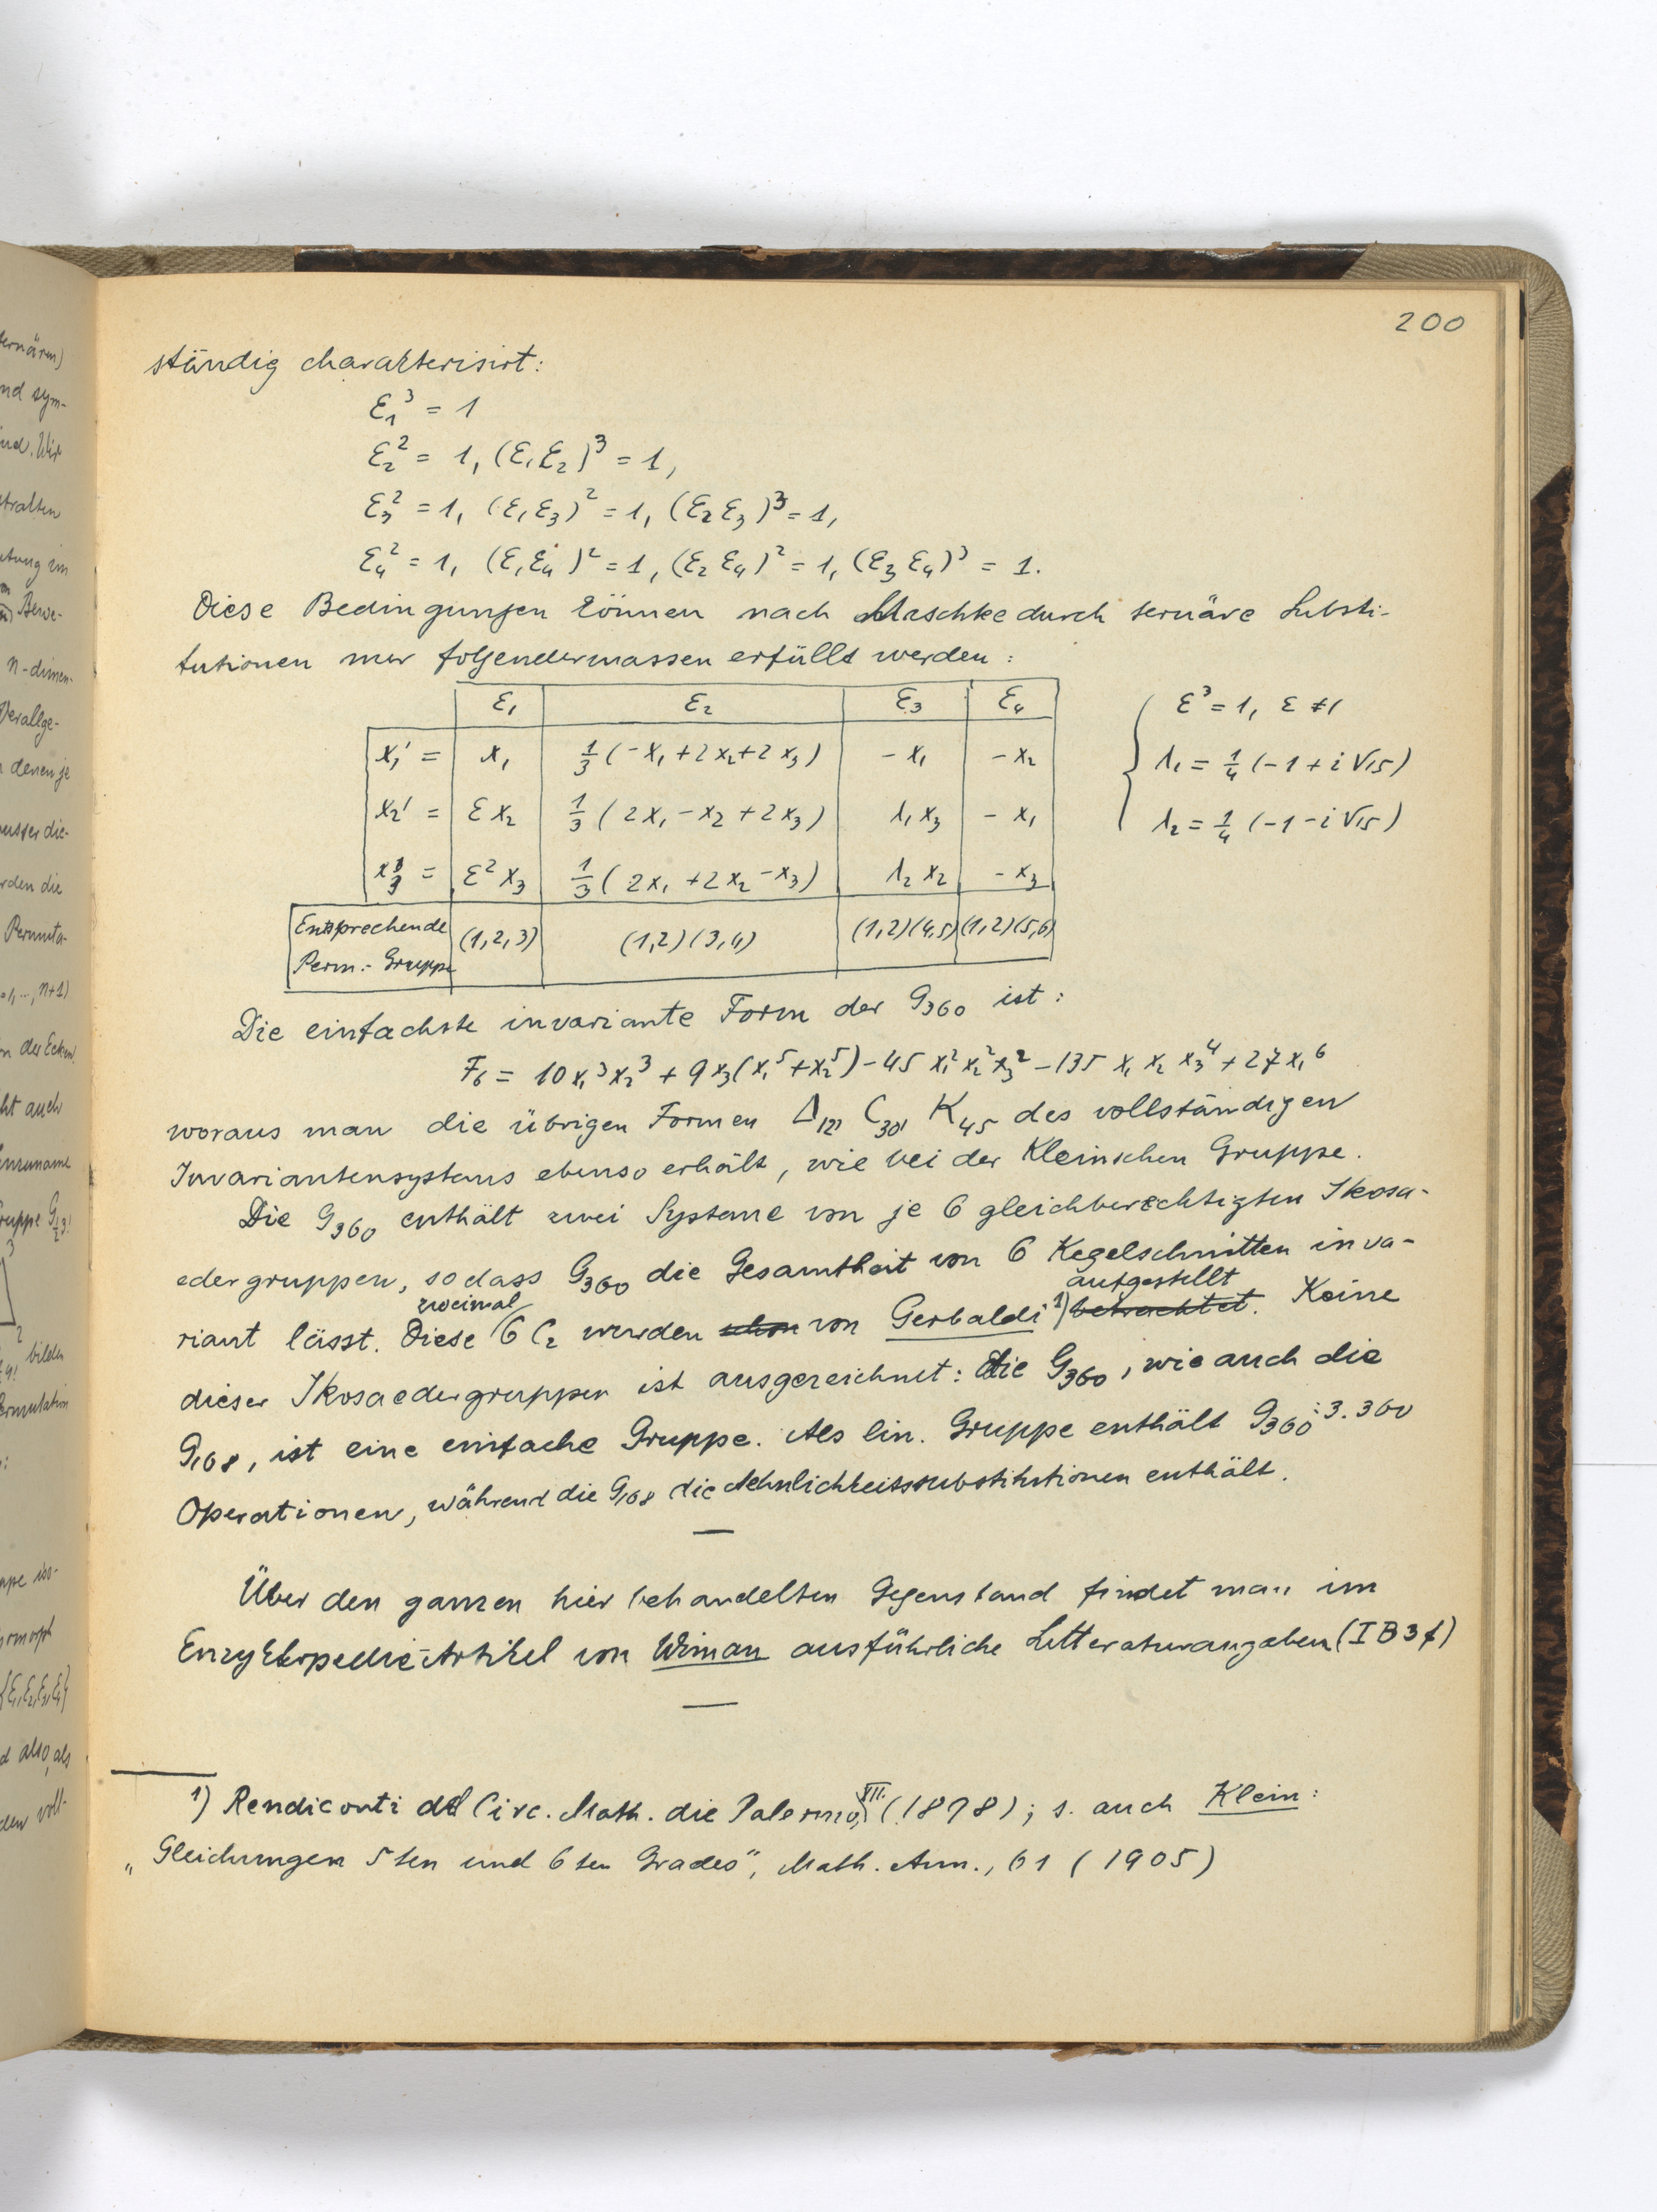 200
ständig charakterisirt:
ε₁³ = 1
ε₂² = 1, (ε₁ε₂)³ = 1,
ε₃² = 1, (ε₁ε₃)² = 1, (ε₂ε₃)³ = 1,
ε₄² = 1, (ε₁ε₄)² = 1, (ε₂ε₄)² = 1, (ε₃ε₄)³ = 1.
Diese Bedingungen können nach Maschke durch ternäre Substi-
tutionen nur folgendermassen erfüllt werden:
ε₁ ε₂ ε₃ ε₄
x₁' = x₁ 1/3 (-x₁ + 2x₂ + 2x₃) -x₁ -x₂
x₂' = εx₂ 1/3 (2x₁ - x₂ + 2x₃) λ₁x₃ -x₁
x₃' = ε²x₃ 1/3 (2x₁ + 2x₂ - x₃) λ₂x₂ -x₃
Entsprechende Perm.-Gruppe (1,2,3) (1,2)(3,4) (1,2)(4,5) (1,2)(5,6)
ε³ = 1, ε ≠ 1
λ₁ = 1/4 (-1 + i√15)
λ₂ = 1/4 (-1 - i√15)
Die einfachste invariante Form der G₃₆₀ ist:
F₆ = 10x₁³x₂³ + 9x₃(x₁⁵+x₂⁵) - 45x₁²x₂²x₃² - 135x₁x₂x₃⁴ + 27x₁⁶
woraus man die übrigen Formen Δ₁₂, C₃₀, K₄₅ des vollständigen
Invariantensystems ebenso erhält, wie bei der Kleinschen Gruppe.
Die G₃₆₀ enthält zwei Systeme von je 6 gleichberechtigten Ikosa-
edergruppen, sodass G₃₆₀ die Gesamtheit von 6 Kegelschnitten inva-
riant lässt. Diese zweimal 6 C₂ wurden schon von Gerbaldi ¹) betrachtet aufgestellt. Keine
dieser Ikosaedergruppen ist ausgezeichnet: die G₃₆₀, wie auch die
G₁₆₈, ist eine einfache Gruppe. Als lin. Gruppe enthält G₃₆₀: 3.360
Operationen, während die G₁₆₈ die Aehnlichkeitssubstitutionen enthält.
Über den ganzen hier behandelten Gegenstand findet man im
Enzyklopedie-Artikel von Wiman ausführliche Litteraturangaben (I B 3 f)
1) Rendiconti del Circ. Math. die Palermo, XII. (1898); s. auch Klein:
„Gleichungen 5ten und 6ten Grades", Math. Ann., 61 (1905)